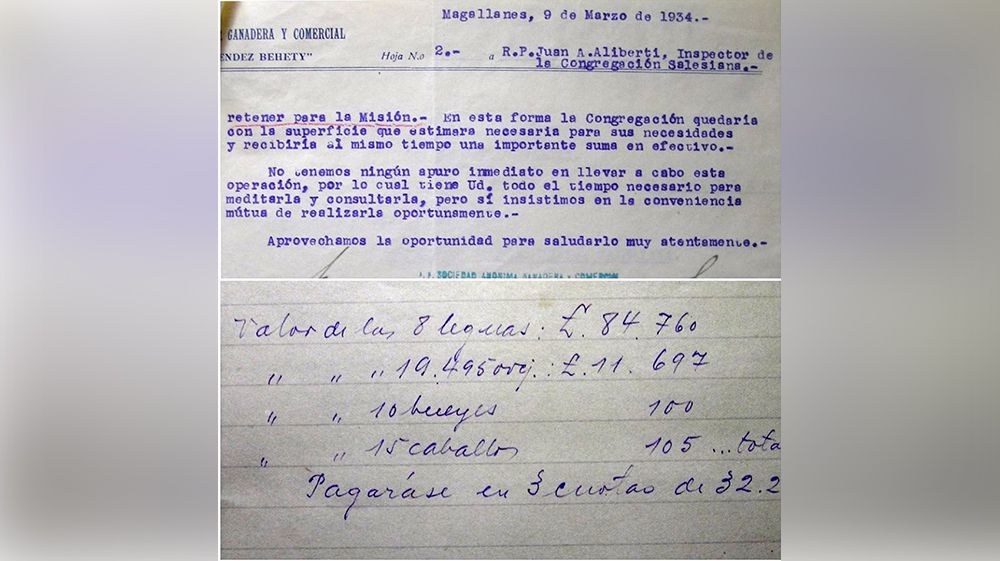 Magallanes, 9 de Marzo de 1934.-
GANADERA Y COMERCIAL
NDEZ BEHETY"
Hoja N.o 2.- a R.P.Juan A.Aliberti, Inspector de
la Congregación Salesiana.-
retener para la Misión.- En esta forma la Congregación quedaría
con la superficie que estimara necesaria para sus necesidades
y recibiría al mismo tiempo una importante suma en efectivo.-
No tenemos ningún apuro inmediato en llevar a cabo esta
operación, por lo cual tiene Ud. todo el tiempo necesario para
meditarla y consultarla, pero sí insistimos en la conveniencia
mútua de realizarla oportunamente.-
Aprovechamos la oportunidad para saludarlo muy atentamente.-
SOCIEDAD ANONIMA GANADERA Y COMERCIAL
Valor de las 8 leguas: £. 84.760
" " " 19.495 ovej.: £. 11.697
" " 10 bueyes 100
" " 15 caballos 105 ... tota
Pagaráse en 3 cuotas de 32.2